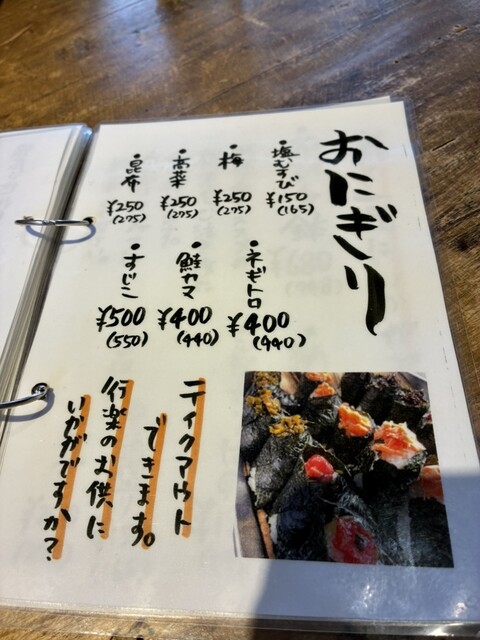 おにぎり
・塩むすび
¥150
(165)
・梅
¥250
(275)
・高菜
¥250
(275)
・昆布
¥250
(275)
・ネギトロ
¥400
(440)
・鮭ヤマ
¥400
(440)
・すじこ
¥500
(550)
テイクアウト
できます。
行楽のお供に
いかがですか？